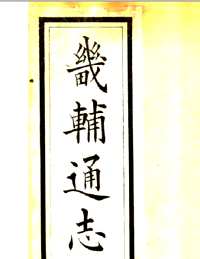 畿輔通志